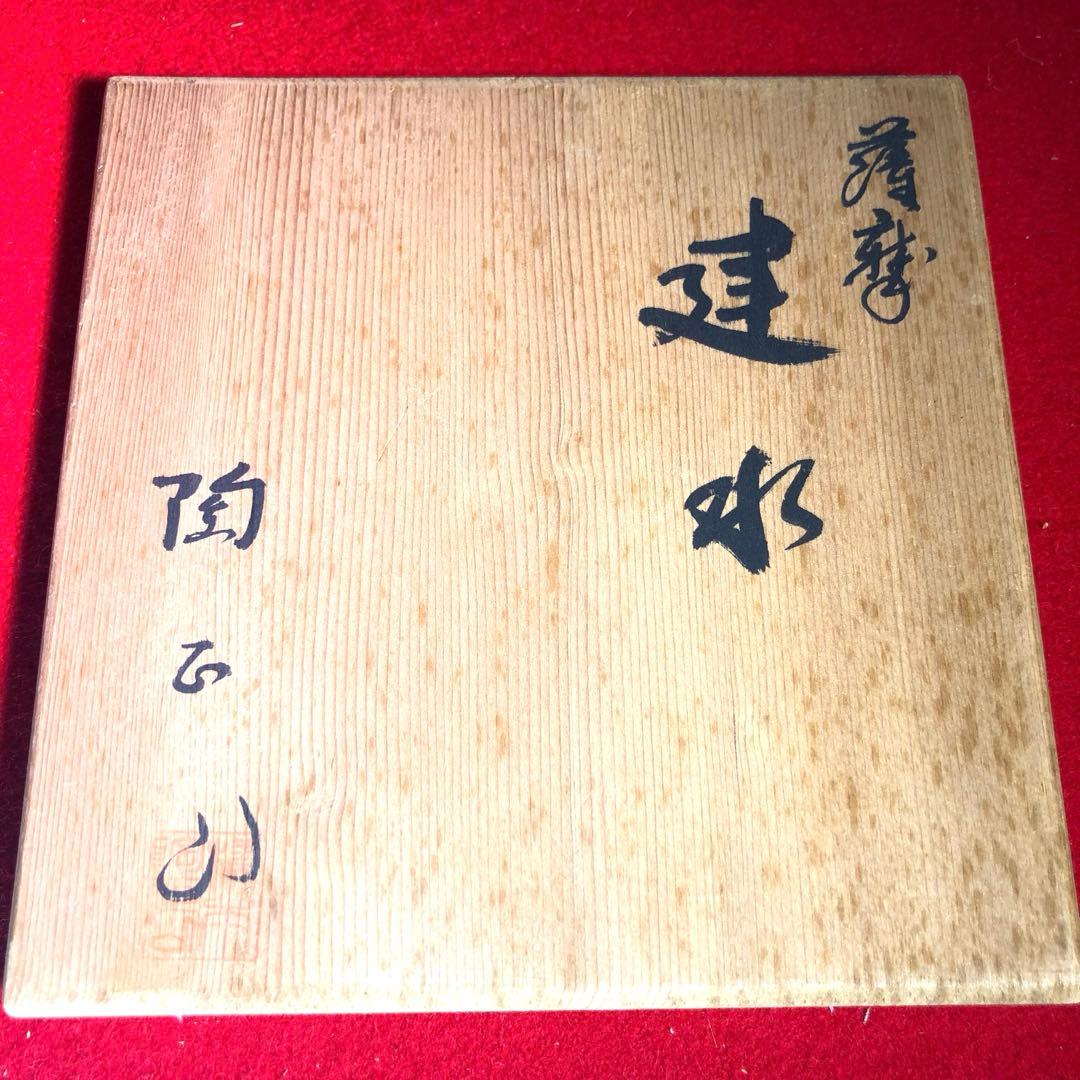 薩摩
建水
陶正山